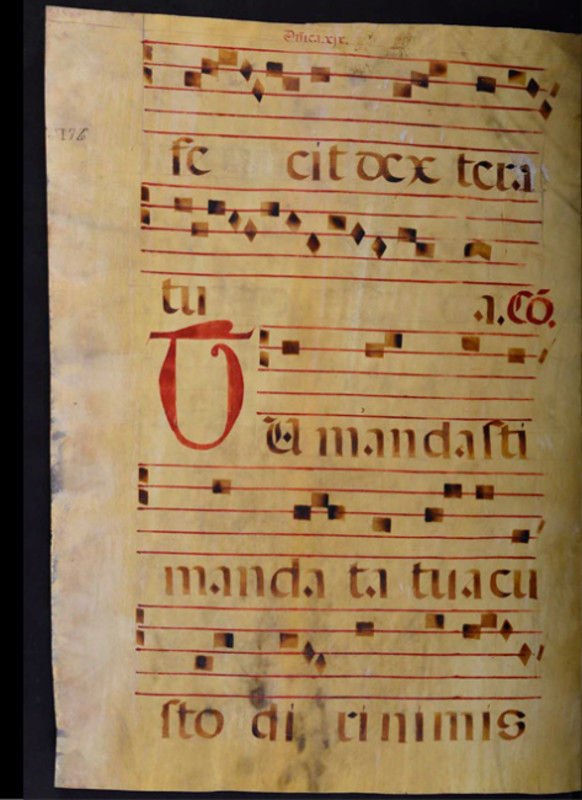 Dñica.xix.
176
fe cit dex tera
tu a. Cō.
TU mandasti
manda ta tua cu
sto di ri nimis